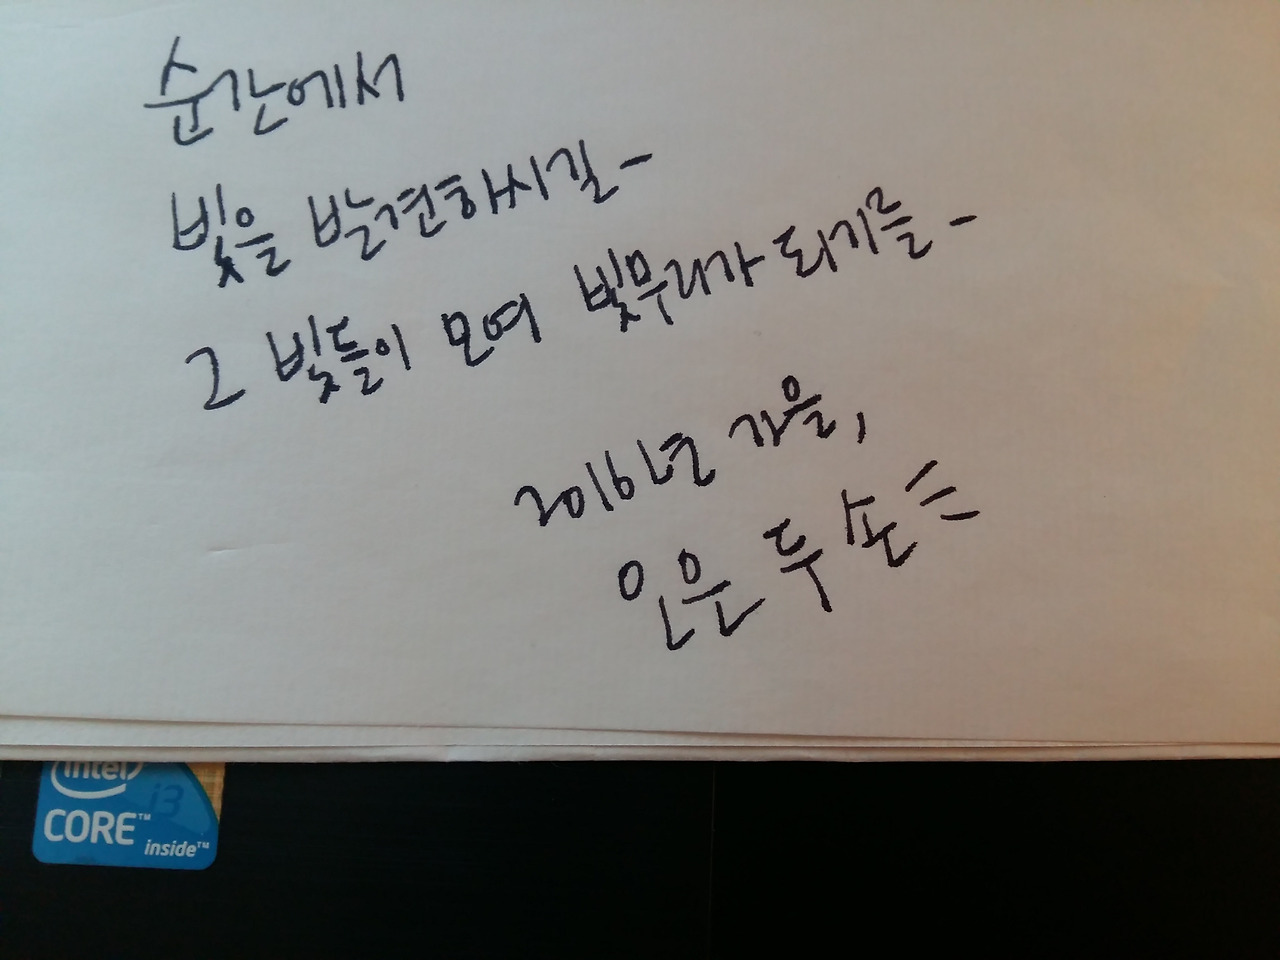 순간에서
빛을 발견하시길-
그 빛들이 모여 빛무리가 되기를-
2016년 가을,
인은 두 손
intel
i3
CORE™
inside™